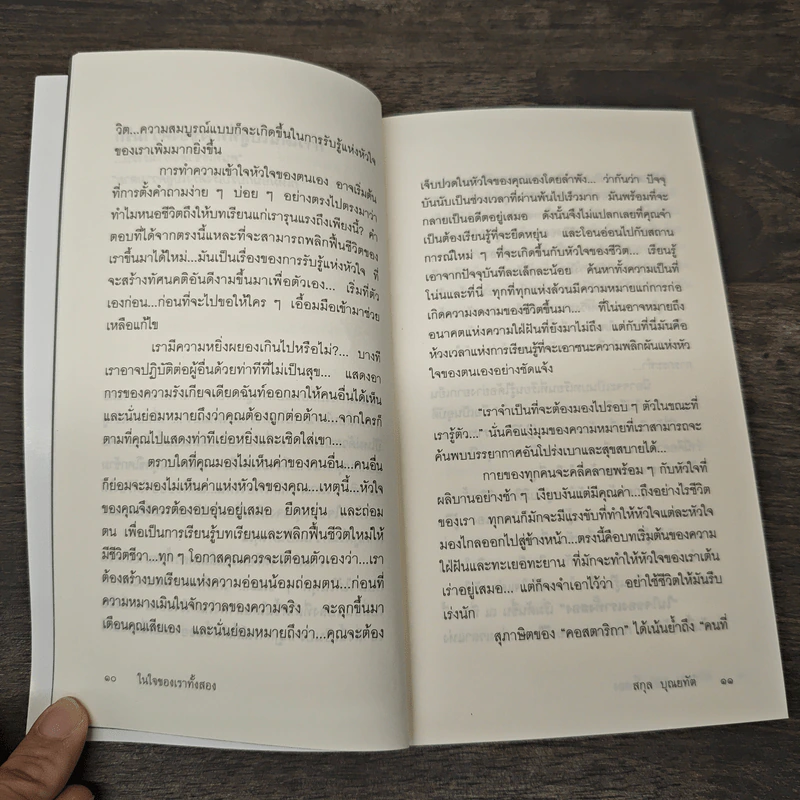 วิต...ความสมบูรณ์แบบก็จะเกิดขึ้นในการรับรู้แห่งหัวใจ
ของเราเพิ่มมากยิ่งขึ้น
การทำความเข้าใจหัวใจของตนเอง อาจเริ่มต้น
ที่การตั้งคำถามง่าย ๆ บ่อย ๆ อย่างตรงไปตรงมาว่า
ทำไมหนอชีวิตถึงให้บทเรียนแก่เรารุนแรงถึงเพียงนี้? คำ
ตอบที่ได้จากตรงนี้แหละที่จะสามารถพลิกฟื้นชีวิตของ
เราขึ้นมาได้ใหม่...มันเป็นเรื่องของการรับรู้แห่งหัวใจ ที่
จะสร้างทัศนคติอันดีงามขึ้นมาเพื่อตัวเอง... เริ่มที่ตัว
เองก่อน...ก่อนที่จะไปขอให้ใคร ๆ เอื้อมมือเข้ามาช่วย
เหลือแก้ไข
เรามีความหยิ่งผยองเกินไปหรือไม่?... บางที
เราอาจปฏิบัติต่อผู้อื่นด้วยท่าทีที่ไม่เป็นสุข... แสดงอา
การของความรังเกียจเดียดฉันท์ออกมาให้คนอื่นได้เห็น
และนั่นย่อมหมายถึงว่าคุณต้องถูกต่อต้าน...จากใครก็
ตามที่คุณไปแสดงท่าทีเย่อหยิ่งและเชิดใส่เขา...
ตราบใดที่คุณมองไม่เห็นค่าของคนอื่น...คนอื่น
ก็ย่อมจะมองไม่เห็นค่าแห่งหัวใจของคุณ...เหตุนี้...หัวใจ
ของคุณจึงควรต้องอบอุ่นอยู่เสมอ ยืดหยุ่น และถ่อม
ตน เพื่อเป็นการเรียนรู้บทเรียนและพลิกฟื้นชีวิตใหม่ให้
มีชีวิตชีวา...ทุก ๆ โอกาสคุณควรจะเตือนตัวเองว่า...เรา
ต้องสร้างบทเรียนแห่งความอ่อนน้อมถ่อมตน...ก่อนที่
ความหมางเมินในจักรวาลของความจริง จะลุกขึ้นมา
เตือนคุณเสียเอง และนั่นย่อมหมายถึงว่า...คุณจะต้อง
๑๐ ในใจของเราทั้งสอง
เจ็บปวดในหัวใจของคุณเองโดยลำพัง... ว่ากันว่า ปัจจุ
บันนั้นเป็นช่วงเวลาที่ผ่านพ้นไปเร็วมาก มันพร้อมที่จะ
กลายเป็นอดีตอยู่เสมอ ดังนั้นจึงไม่แปลกเลยที่คุณจำ
เป็นต้องเรียนรู้ที่จะยืดหยุ่น และโอนอ่อนไปกับสถาน
การณ์ใหม่ ๆ ที่จะเกิดขึ้นกับหัวใจของชีวิต... เรียนรู้
เอาจากปัจจุบันทีละเล็กละน้อย ค้นหาทั้งความเป็นที่
โน่นและที่นี่ ทุกที่ทุกแห่งล้วนมีความหมายแก่การก่อ
เกิดความงดงามของชีวิตขึ้นมา... ที่โน่นอาจหมายถึง
อนาคตแห่งความใฝ่ฝันที่ยังมาไม่ถึง แต่กับที่นี่มันคือ
ห้วงเวลาแห่งการเรียนรู้ที่จะเอาชนะความพลิกผันแห่งหัว
ใจของตนเองอย่างชัดแจ้ง
“เราจำเป็นที่จะต้องมองไปรอบ ๆ ตัวในขณะที่
เรารู้ตัว...” นั่นคือแง่มุมของความหมายที่เราสามารถจะ
ค้นพบบรรยากาศอันโปร่งเบาและสุขสบายได้...
กายของทุกคนจะคลี่คลายพร้อม ๆ กับหัวใจที่
ผลิบานอย่างช้า ๆ เงียบงันแต่มีคุณค่า...ถึงอย่างไรชีวิต
ของเรา ทุกคนก็มักจะมีแรงขับที่ทำให้หัวใจแต่ละหัวใจ
มองไกลออกไปสู่ข้างหน้า...ตรงนี้คือบทเริ่มต้นของความ
ใฝ่ฝันและทะเยอทะยาน ที่มักจะทำให้หัวใจของเราเต้น
เร่าอยู่เสมอ... แต่ก็จงจำเอาไว้ว่า อย่าใช้ชีวิตให้มันรีบ
เร่งนัก
สุภาษิตของ “คอสตาริกา” ได้เน้นย้ำถึง “คนที่
สกุล บุณยทัต ๑๑